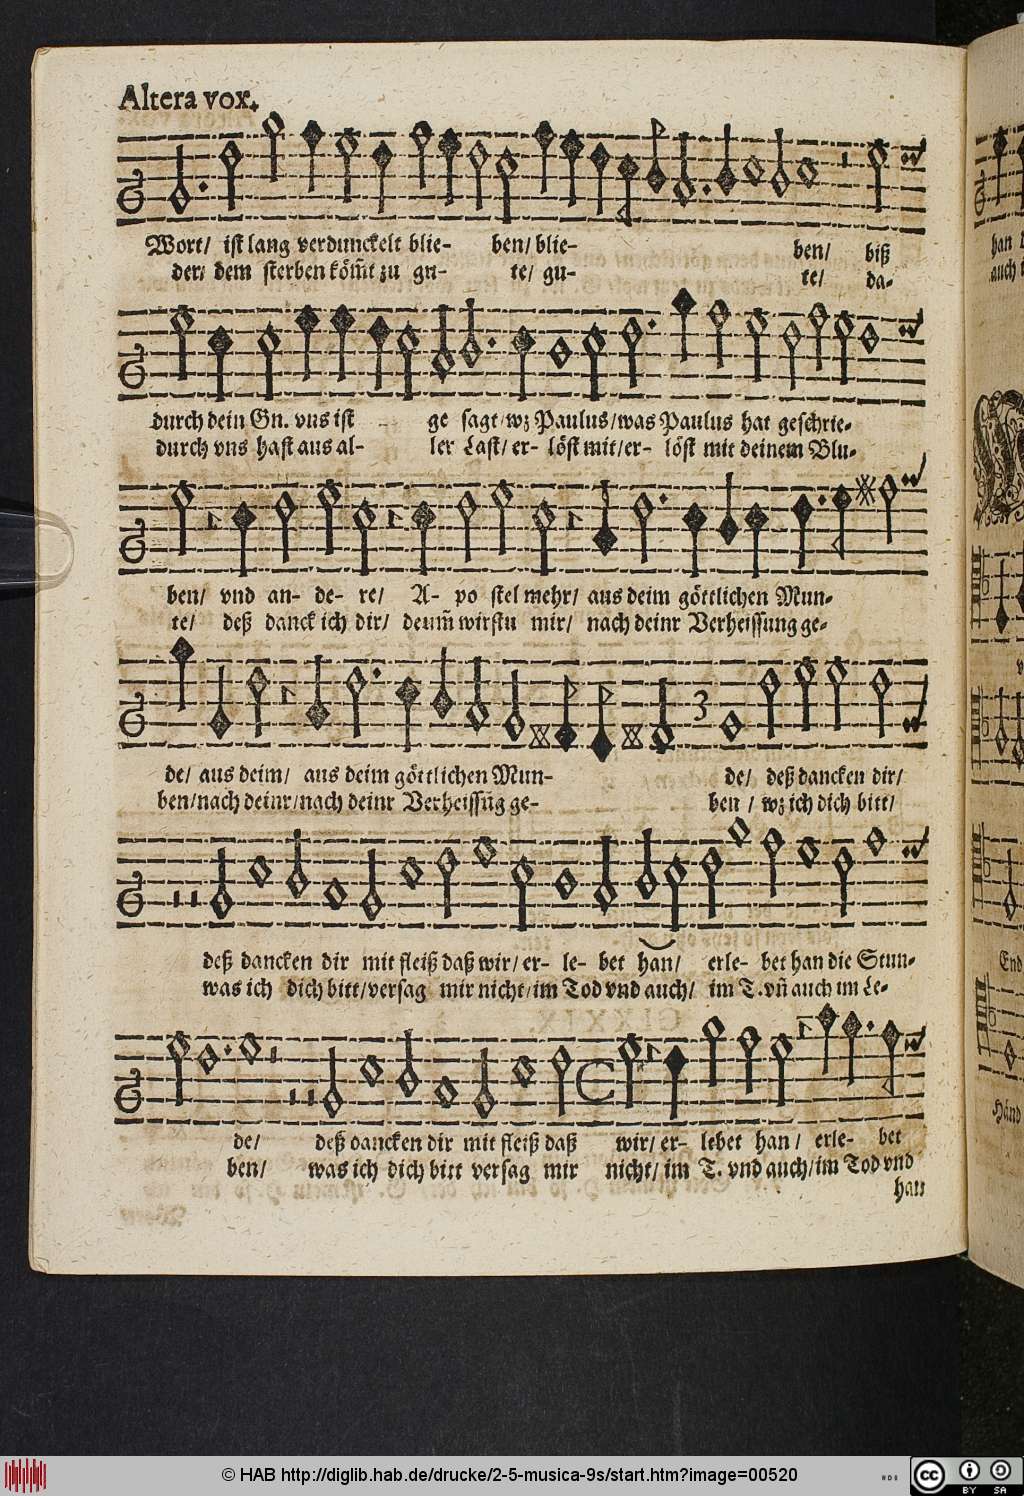 Altera vox.
Wort/ ist lang verdunckelt blie- ben/ blie- ben/ biß
der/ dem sterben köm̃t zu gu- te/ gu- te/ da-
durch dein Gn. vns ist ge sagt/wz Paulus/was Paulus hat geschrie-
durch vns hast aus al- ler Last/ er- löst mit/er- löst mit deinem Blu-
ben/ vnd an- de- re/ A- po stel mehr/ aus deim göttlichen Mun-
te/ deß danck ich dir/ deum̃ wirstu mir/ nach deinr Verheissung ge-
de/ aus deim/ aus deim göttlichen Mun- de/ deß dancken dir/
ben/nach deinr/nach deinr Verheissũg ge- ben/ wz ich dich bitt/
3
deß dancken dir mit fleiß daß wir/ er- le- bet han/ erle- bet han die Stun-
was ich dich bitt/versag mir nicht/im Tod vnd auch/ im T.vñ auch im Le-
de/ deß dancken dir mit fleiß daß wir/ er- lebet han/ erle- bet
ben/ was ich dich bitt versag mir nicht/ im T. vnd auch/im Tod vnd
han
han
auch
End
Händ
© HAB http://diglib.hab.de/drucke/2-5-musica-9s/start.htm?image=00520
cc BY SA